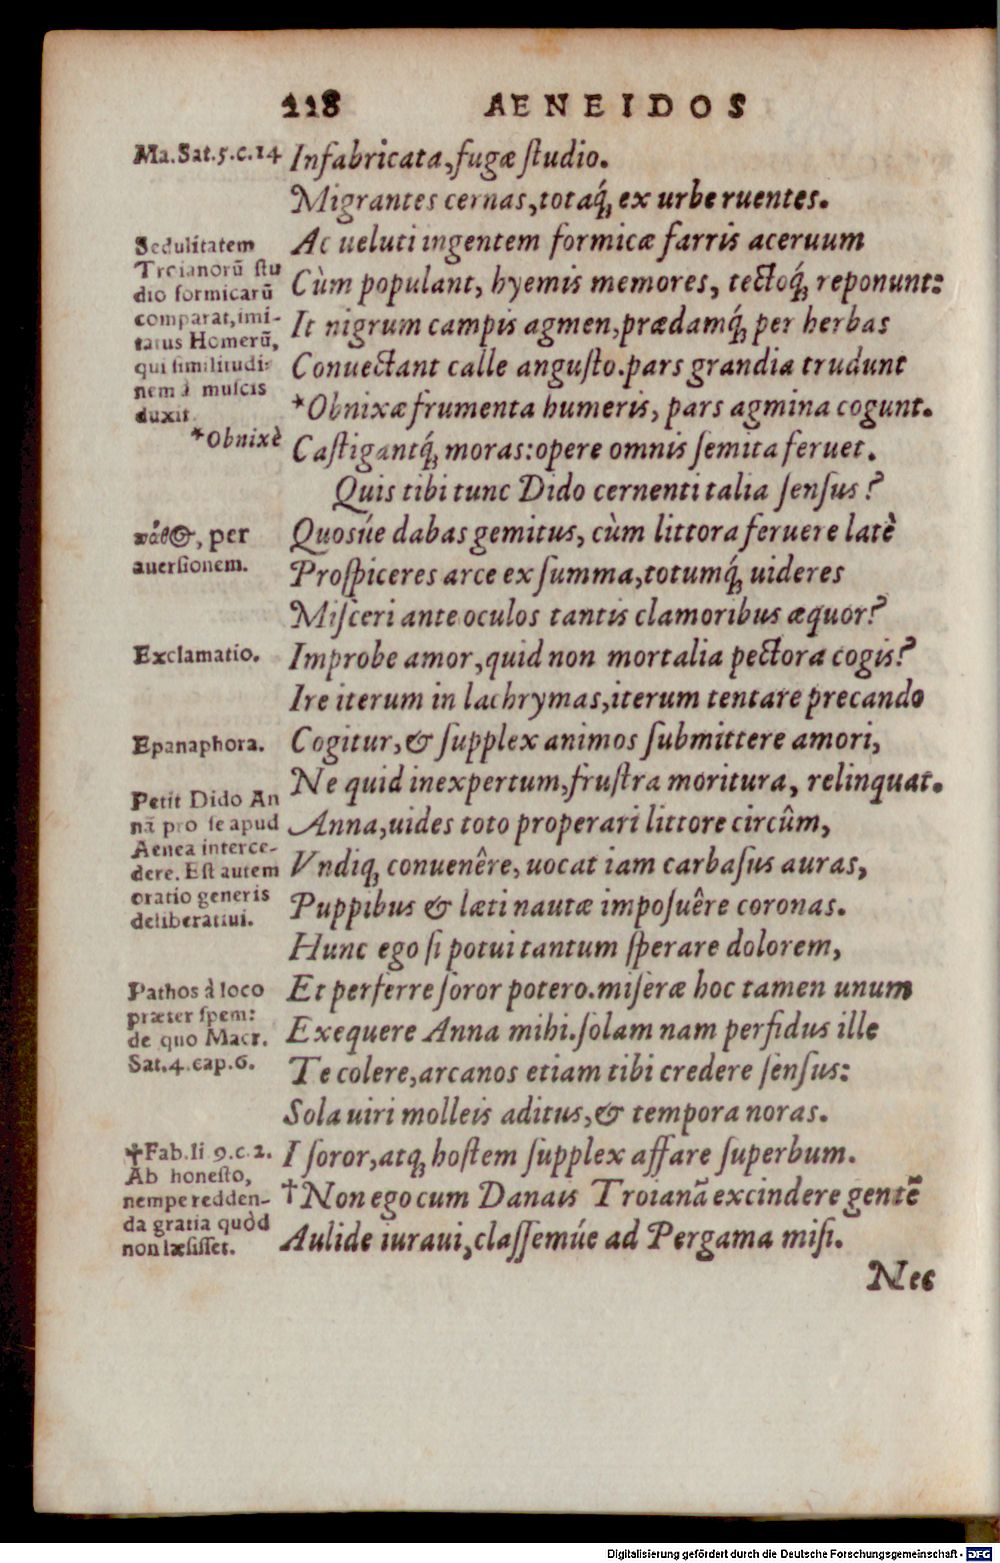 218 AENEIDOS
Ma.Sat.5.c.14
Infabricata, fugæ ſtudio.
Migrantes cernas, totaq́; ex urbe ruentes.
Sedulitatem
Troianorũ ſtu
dio formicarũ
comparat, imi-
tatus Homerũ,
qui ſimilitudi-
nem à muſcis
duxit.
*Obnixè
Ac ueluti ingentem formicæ farris aceruum
Cùm populant, hyemis memores, tectoq́; reponunt:
It nigrum campis agmen, prædamq́; per herbas
Conuectant calle anguſto. pars grandia trudunt
*Obnixæ frumenta humeris, pars agmina cogunt.
Caſtigantq́; moras: opere omnis ſemita feruet.
Quis tibi tunc Dido cernenti talia ſenſus?
πάθος, per
auerſionem.
Quosúe dabas gemitus, cùm littora feruere latè
Proſpiceres arce ex ſumma, totumq́; uideres
Miſceri ante oculos tantis clamoribus æquor?
Exclamatio.
Improbe amor, quid non mortalia pectora cogis?
Ire iterum in lachrymas, iterum tentare precando
Epanaphora.
Cogitur, & ſupplex animos ſubmittere amori,
Ne quid inexpertum, fruſtra moritura, relinquat.
Petit Dido An
nã pro ſe apud
Aenea interce-
dere. Eſt autem
oratio generis
deliberatiui.
Anna, uides toto properari littore circûm,
Vndiq; conuenêre, uocat iam carbaſus auras,
Puppibus & læti nautæ impoſuêre coronas.
Hunc ego ſi potui tantum ſperare dolorem,
Pathos à loco
præter ſpem:
de quo Macr.
Sat.4.cap.6.
Et perferre ſoror potero. miſeræ hoc tamen unum
Exequere Anna mihi. ſolam nam perfidus ille
Te colere, arcanos etiam tibi credere ſenſus:
Sola uiri molleis aditus, & tempora noras.
†Fab.li 9.c.2.
Ab honeſto,
nempe redden-
da gratia quòd
non læſiſſet.
I ſoror, atq; hoſtem ſupplex affare ſuperbum.
†Non ego cum Danais Troianã excindere gentẽ
Aulide iuraui, claſſemúe ad Pergama miſi.
Nec
Digitalisierung gefördert durch die Deutsche Forschungsgemeinschaft - DFG